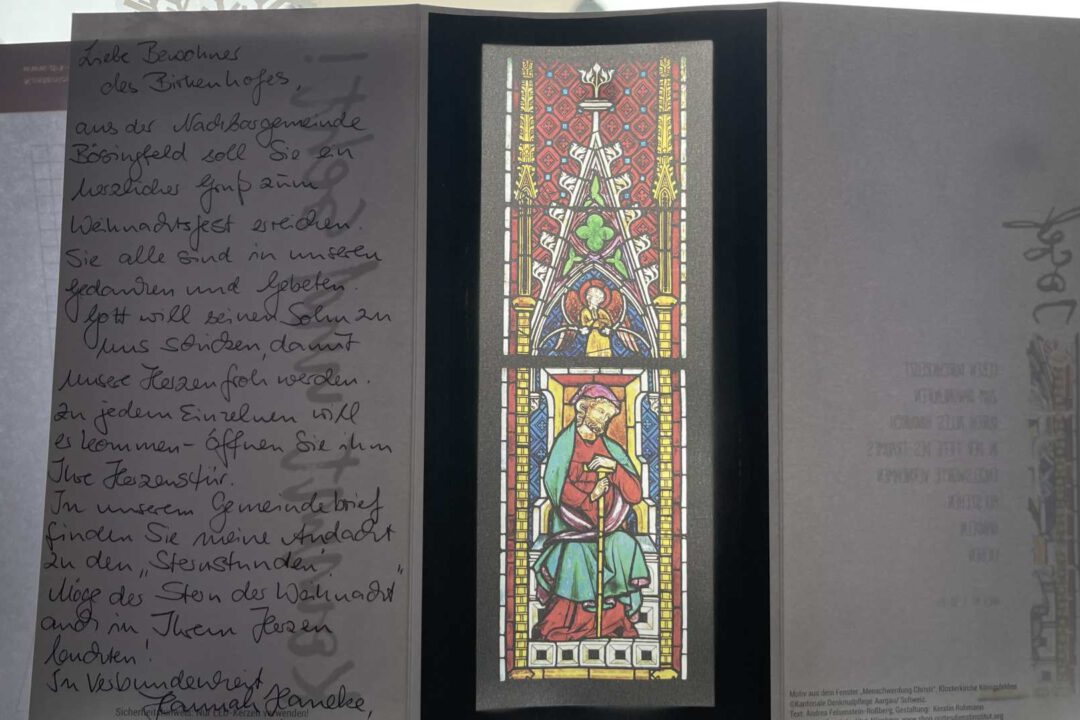 Liebe Bewohner
des Birkenhofes,
aus der Nachbargemeinde
Bösingfeld soll Sie ein
herzlicher Gruß zum
Weihnachtsfest erreichen.
Sie alle sind in unseren
Gedanken und Gebeten.
Gott will seinen Sohn zu
uns schicken, damit
unsere Herzen froh werden.
Zu jedem Einzelnen will
er kommen - Öffnen Sie ihm
Ihre Herzenstür.
In unserem Gemeindebrief
finden Sie meine Andacht
zu den „Sternstunden“.
Möge der Stern der Weihnacht
auch in Ihrem Herzen
leuchten!
In Verbundenheit
Hannah Haneke,
Sicherheitshinweis: Nur LED-Kerzen verwenden!
Josef
ZUM
IN DER TIEFE DES TRAUMES
ENGELSWORTE VERNEHMEN
AUFSTEHEN
HANDELN
LIEBEN
Motiv aus dem Fenster „Menschwerdung Christi“, Klosterkirche Königsfelden
©Kantonale Denkmalpflege Aargau/ Schweiz.
Text: Andrea Felsenstein-Roßberg, Gestaltung: Kerstin Rohmann